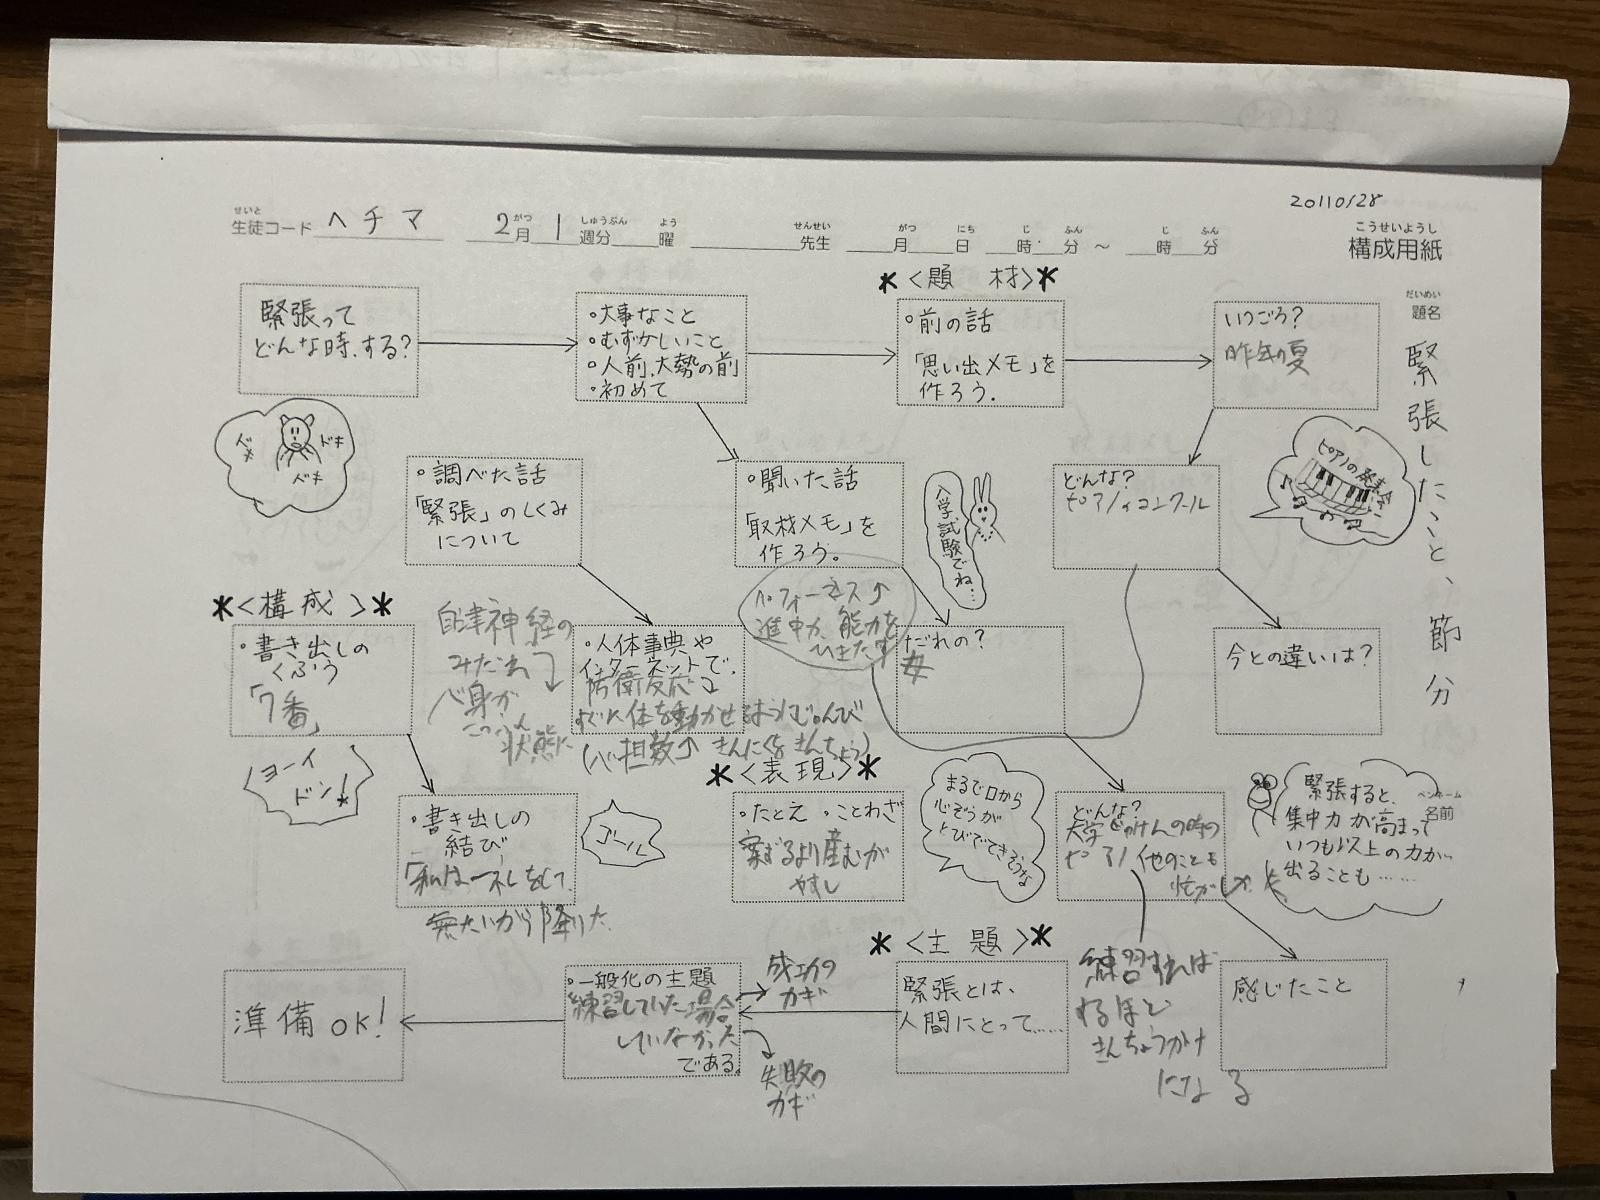 20110128
せいと
生徒コード ヘチマ 2月 1週分 曜 先生 月 日 時 分 ～ 時 分
がつ しゅうぶん よう せんせい がつ にち じ ふん じ ふん
こうせいようし
構成用紙
だいめい
題名
緊張したこと、節分
ペンネーム
名前
緊張って
どんな時、する?
・大事なこと
・むずかしいこと
・人前、大勢の前
・初めて
＊〈題 材〉＊
・前の話
「思い出メモ」を
作ろう。
いつごろ?
昨年の夏
ドキ
ドキ
ドキ
・調べた話
「緊張」のしくみ
について
・聞いた話
「取材メモ」を
作ろう。
入学試験でね…
どんな?
ピアノのコンクール
ピアノの発表会
＊〈構成〉＊
・書き出しの
くふう
「7番」
自律神経の
みだれ
心身が
状態に
・人体事典や
インターネットで、
防衛反応
すぐに体を動かせるようにじゅんび
(心拍数↑ きんにくをきんちょう)
パフォーマンス↑
集中力、能力を
ひきだす
だれの?
母
今との違いは?
ヨーイ
ドン!
・書き出しの
結び
「私は一礼をして、
舞たいから降りた
ゴール
＊〈表現〉＊
・たとえ ・ことわざ
案ずるより産むが
やすし
まるで口から
心ぞうが
とびでてきそうな
どんな?
大学じゅけんの時の
ピアノ 他のことも
忙がしかった
緊張すると、
集中力が高まって
いつも以上の力が
出ることも……
＊〈主 題〉＊
準備OK!
・一般化の主題
練習していた場合
していなかった
である。
成功の
カギ
失敗の
カギ
緊張とは、
人間にとって……
練習すれば
するほど
きんちょうかけ
になる
感じたこと